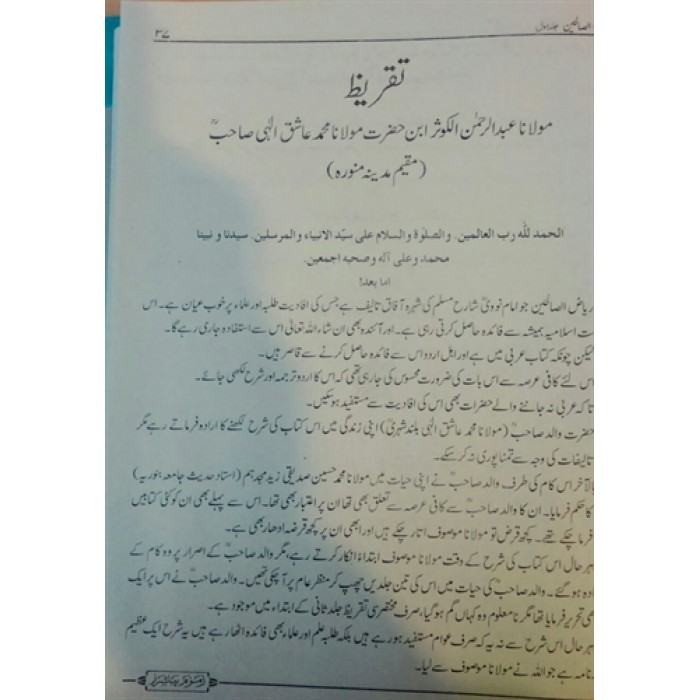 الصالحین جلد اول
۳۷
تقریظ
مولانا عبدالرحمٰن الکوثر ابن حضرت مولانا محمد عاشق الٰہی صاحبؒ
(مقیم مدینہ منورہ)
الحمد للّٰہ رب العالمین. والصلوٰۃ والسلام علی سیّد الانبیاء والمرسلین. سیدنا و نبینا
محمد وعلی آلہ وصحبہ اجمعین.
اما بعد!
ریاض الصالحین جو امام نوویؒ شارح مسلم کی شہرہ آفاق تالیف ہے جس کی افادیت طلبہ اور علماء پر خوب عیاں ہے۔ اس
ت اسلامیہ ہمیشہ سے فائدہ حاصل کرتی رہی ہے۔ اور آئندہ بھی ان شاء اللہ تعالیٰ اس سے استفادہ جاری رہے گا۔
لیکن چونکہ کتاب عربی میں ہے اور اہل اردو اس سے فائدہ حاصل کرنے سے قاصر ہیں۔
اس لئے کافی عرصہ سے اس بات کی ضرورت محسوس کی جا رہی تھی کہ اس کا اردو ترجمہ اور شرح لکھی جائے۔
تا کہ عربی نہ جاننے والے حضرات بھی اس کی افادیت سے مستفید ہوسکیں۔
حضرت والد صاحبؒ (مولانا محمد عاشق الٰہی بلند شہریؒ) اپنی زندگی میں اس کتاب کی شرح لکھنے کا ارادہ فرماتے رہے مگر
تالیفات کی وجہ سے تمنا پوری نہ کر سکے۔
بالآخر اس کام کی طرف والد صاحبؒ نے اپنی حیات میں مولانا محمد حسین صدیقی زید مجدہم (استاد حدیث جامعہ بنوریہ)
کا حکم فرمایا۔ ان کا والد صاحبؒ سے کافی عرصہ سے تعلق بھی تھا ان پر اعتبار بھی تھا۔ اس سے پہلے بھی ان کو کئی کتابیں
فرما چکے تھے۔ کچھ قرض تو مولانا موصوف اتار چکے ہیں اور ابھی ان پر کچھ قرضہ ادھار بھی ہے۔
بہر حال اس کتاب کی شرح کے وقت مولانا موصوف ابتداءً انکار کرتے رہے، مگر والد صاحبؒ کے اصرار پر وہ کام کے
ادہ ہوگئے۔ والد صاحبؒ کی حیات میں اس کی تین جلدیں چھپ کر منظر عام پر آ چکی تھیں۔ والد صاحبؒ نے اس پر ایک
بھی تحریر فرمایا تھا مگر نا معلوم وہ کہاں گم ہوگیا، صرف مختصر سی تقریظ جلد ثانی کے ابتداء میں موجود ہے۔
بہر حال اس شرح سے نہ یہ کہ صرف عوام مستفید ہو رہے ہیں بلکہ طلبہ علم اور علماء بھی فائدہ اٹھا رہے ہیں یہ شرح ایک عظیم
رنامہ ہے جو اللہ نے مولانا موصوف سے لیا۔
زمزم پبلشرز